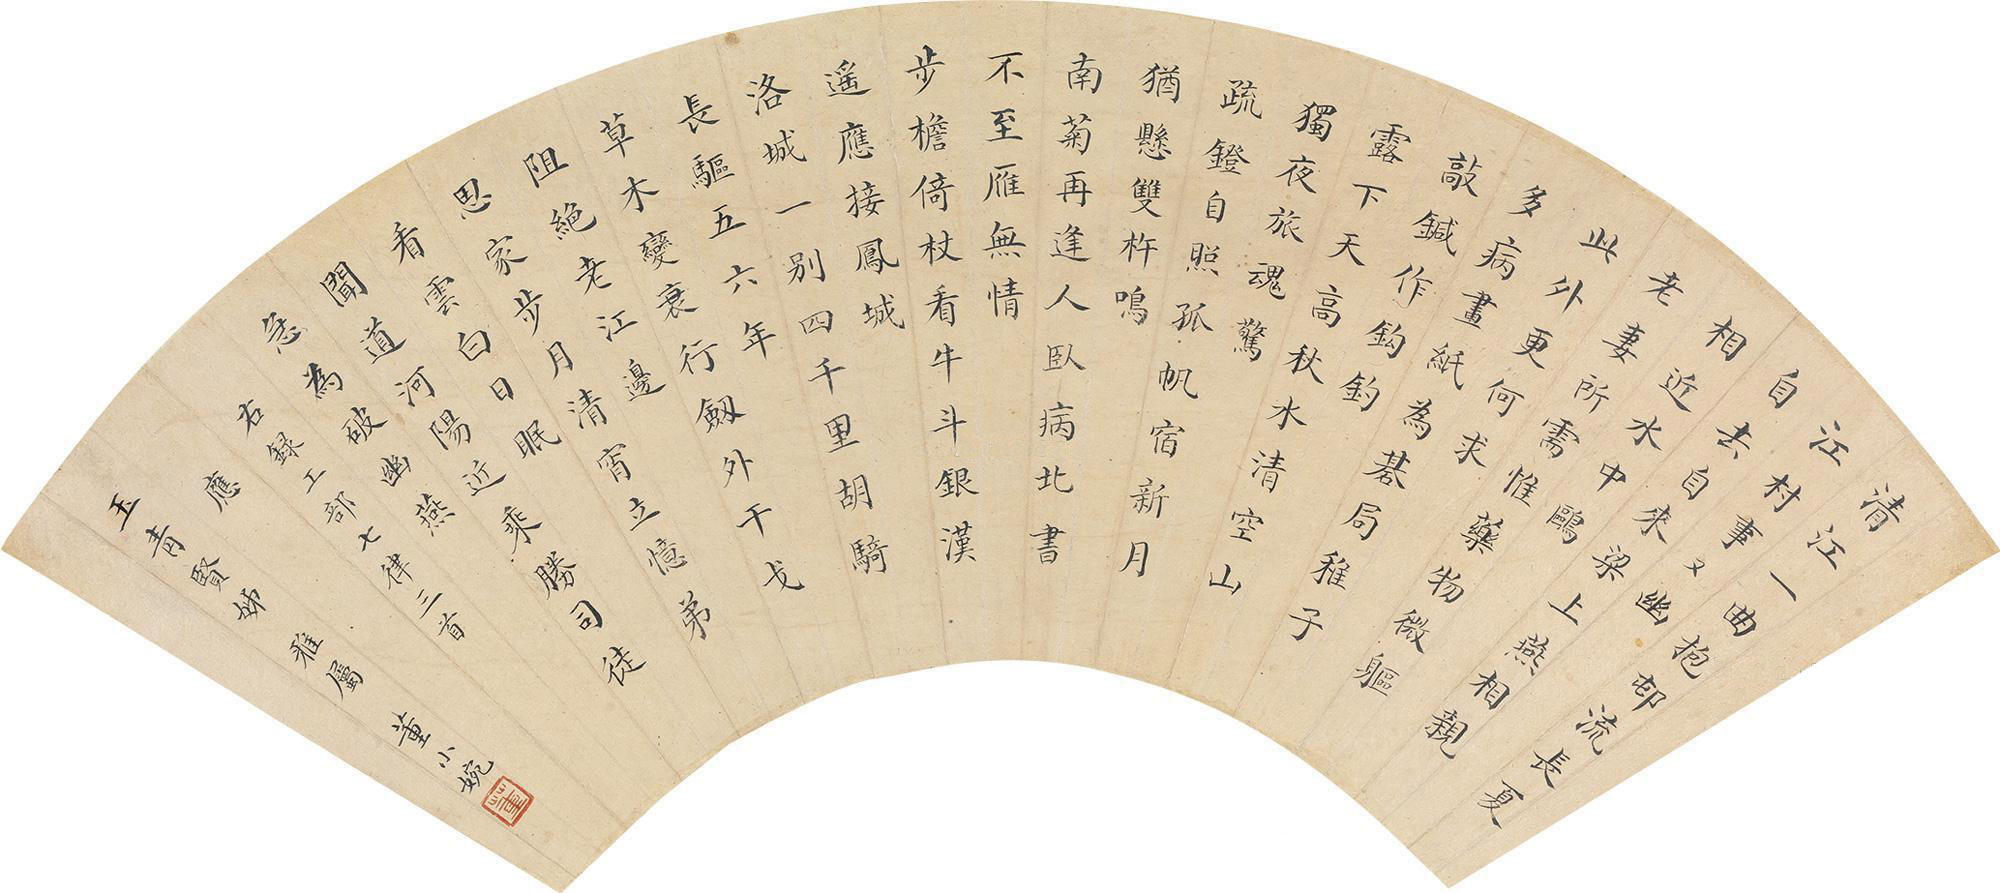 清江一曲抱邨流長夏
江村事〻幽
自去自來梁上燕相親
相近水中鷗
老妻所需惟藥物微軀
此外更何求
多病畫紙為碁局稚子
敲鍼作鈎釣
露下天高秋水清空山
獨夜旅魂驚
疏鐙自照孤帆宿新月
猶懸雙杵鳴
南菊再逢人臥病北書
不至雁無情
步檐倚杖看牛斗銀漢
遙應接鳳城
洛城一別四千里胡騎
長驅五六年
草木變衰行劔外干戈
阻絕老江邊
思家步月清宵立憶弟
看雲白日眠
聞道河陽近乘勝司徒
急為破幽燕
右録工部七律三首
應
玉青賢姊 雅屬 董小婉
董